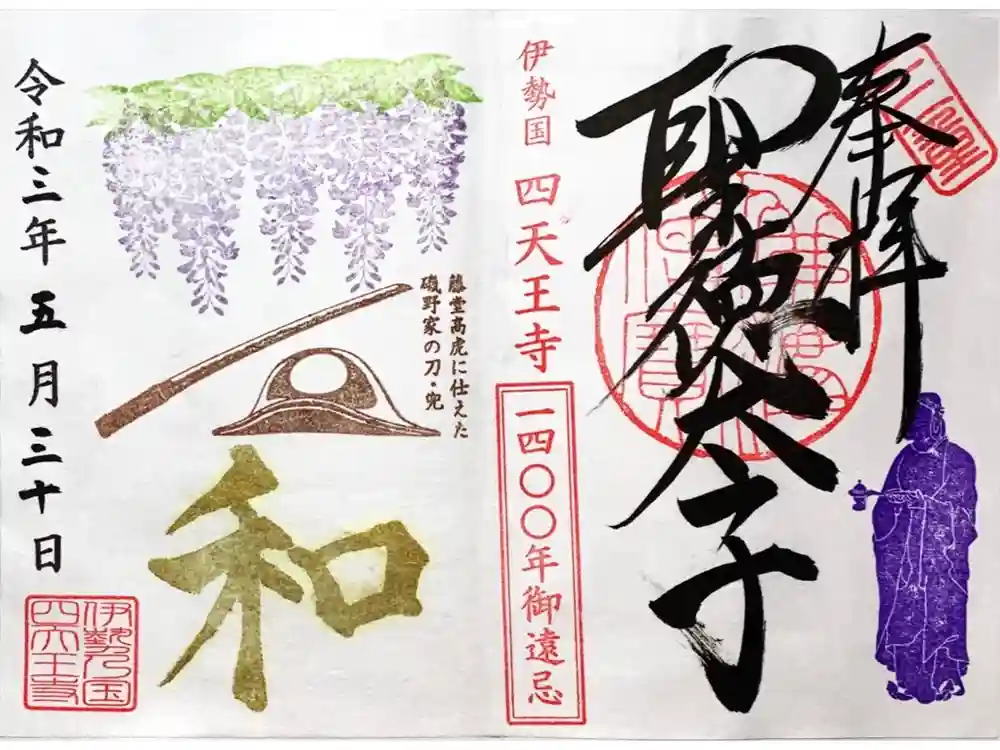 奉拝
聖徳太子
伊勢国 四天王寺
一四〇〇年御遠忌
藤堂高虎に仕えた
磯野家の刀・兜
和
令和三年 五月三十日
伊勢乃国
四天王寺